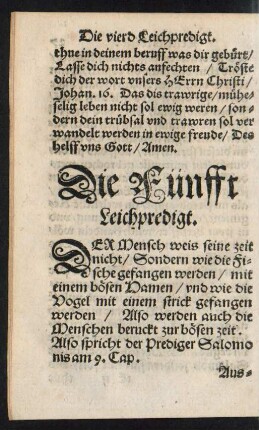 Die vierd Leichpredigt.
thue in deinem beruff was dir gebürt/
Lasse dich nichts anfechten / Tröste
dich der wort vnsers HErrn Christi/
Johan. 16. Das dis trawrige/mühe-
selig leben nicht sol ewig weren / son-
dern dein trübsal vnd trawren sol ver
wandelt werden in ewige freude/ Des
helff vns Gott / Amen.
Die Fünfft
Leichpredigt.
DER Mensch weis seine zeit
nicht/ Sondern wie die Fi-
sche gefangen werden / mit
einem bösen Hamen / vnd wie die
Vogel mit einem strick gefangen
werden / Also werden auch die
Menschen beruckt zur bösen zeit.
Also spricht der Prediger Salomo
nis am 9. Cap.
Aus-